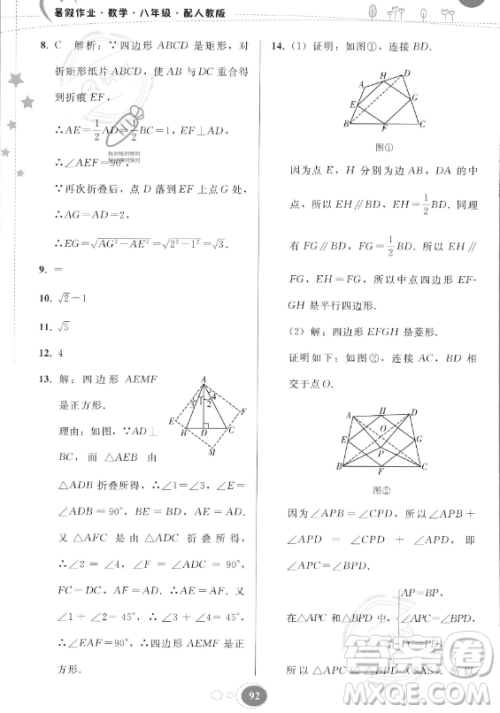 暑假作业·数学·八年级·配人教版
8. C 解析：∵四边形 ABCD 是矩形，对
折矩形纸片 ABCD，使 AB 与 DC 重合得
到折痕 EF，
∴AE=1/2AD=1/2BC=1，EF⊥AD，
∴∠AEF=90°，
∵再次折叠后，点 D 落到 EF 上点 G 处，
∴AG=AD=2，
∴EG=√(AG²−AE²)=√(2²−1²)=√3.
9. =
10. √2−1
11. √5
12. 4
13. 解：四边形 AEMF
是正方形.
理由：如图，∵AD⊥
BC，而 △AEB 由
△ADB 折叠所得，∴∠1=∠3，∠E=
∠ADB=90°，BE=BD，AE=AD.
又 △AFC 是由 △ADC 折叠所得，
∴∠2=∠4，∠F=∠ADC=90°，
FC=CD，AF=AD. ∴AE=AF. 又
∵∠1+∠2=45°，∴∠3+∠4=45°，
∴∠EAF=90°. ∴四边形 AEMF 是正
方形.
14. (1) 证明：如图①，连接 BD.
A H D E G B F C
图①
因为点 E，H 分别为边 AB，DA 的中
点，所以 EH∥BD，EH=1/2BD. 同理
有 FG∥BD，FG=1/2BD. 所以 EH∥
FG，EH=FG. 所以中点四边形 EF-
GH 是平行四边形.
(2) 解：四边形 EFGH 是菱形.
证明如下：如图②，连接 AC，BD 相
交于点 O.
A H D O E G P B F C
图②
因为 ∠APB=∠CPD，所以 ∠APB+
∠APD=∠CPD+∠APD，即
∠APC=∠BPD.
AP=BP，
在△APC 和△BPD 中，∠APC=∠BPD，
所以 △APC≌△BPD(SAS). 所以
92
答案圈
MXQE.COM